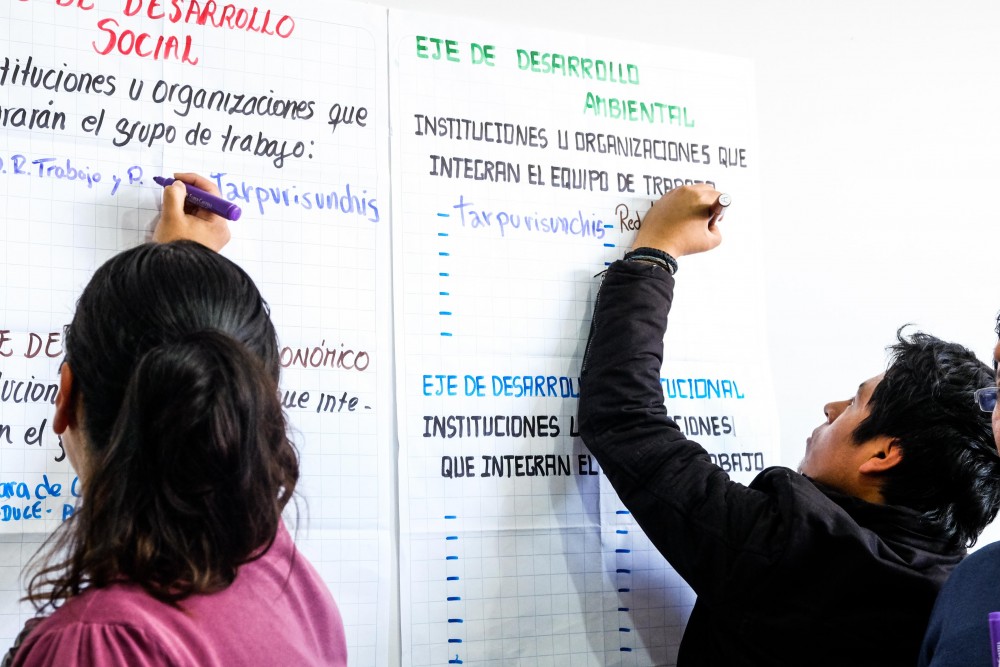 DE DESARROLLO
SOCIAL
tituciones u organizaciones que
rarán el grupo de trabajo:
R. Trabajo y P. Tarpurisunchis
E DE ONÓMICO
ucion que inte-
n el
ara de
DUCE-
EJE DE DESARROLLO
AMBIENTAL
INSTITUCIONES U ORGANIZACIONES QUE
INTEGRAN EL EQUIPO DE TRABAJO
- tarpurisunchis - Red
EJE DE DESARROL TUCIONAL
INSTITUCIONES U CIONES
QUE INTEGRAN EL BAJO